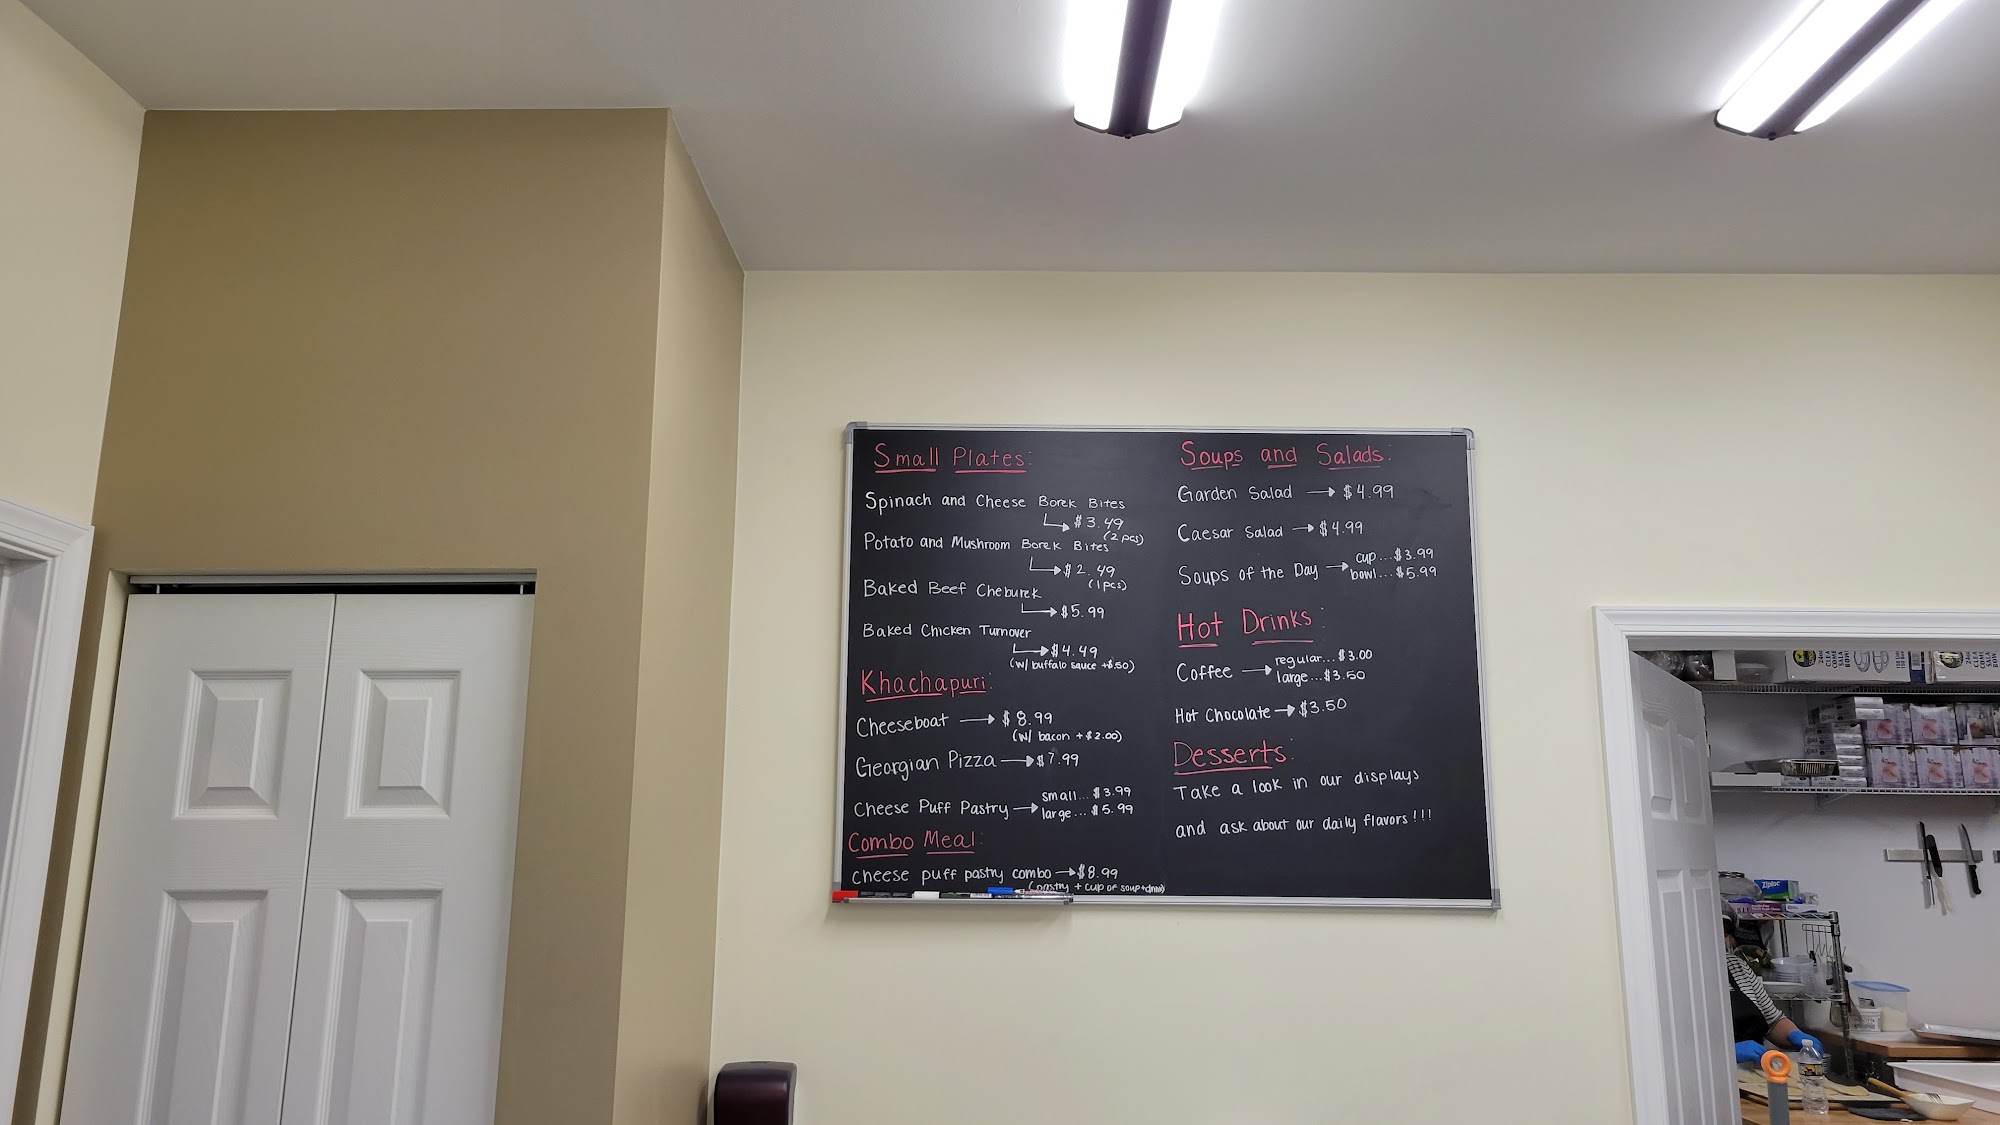 Small Plates:
Spinach and Cheese Borek Bites
$3.49
(2 pcs)
Potato and Mushroom Borek Bites
$2.49
(1pcs)
Baked Beef Cheburek
$5.99
Baked Chicken Turnover
$4.49
(w/ buffalo sauce +$.50)
Khachapuri:
Cheeseboat → $8.99
(w/ bacon +$2.00)
Georgian Pizza → $7.99
Cheese Puff Pastry → small... $3.99
large... $5.99
Combo Meal:
cheese puff pastry combo → $8.99
(pastry + cup of soup+drink)
Soups and Salads:
Garden Salad → $4.99
Caesar Salad → $4.99
Soups of the Day → cup...$3.99
bowl...$5.99
Hot Drinks:
Coffee → regular...$3.00
large...$3.50
Hot Chocolate → $3.50
Desserts:
Take a look in our displays
and ask about our daily flavors!!!
Ziploc